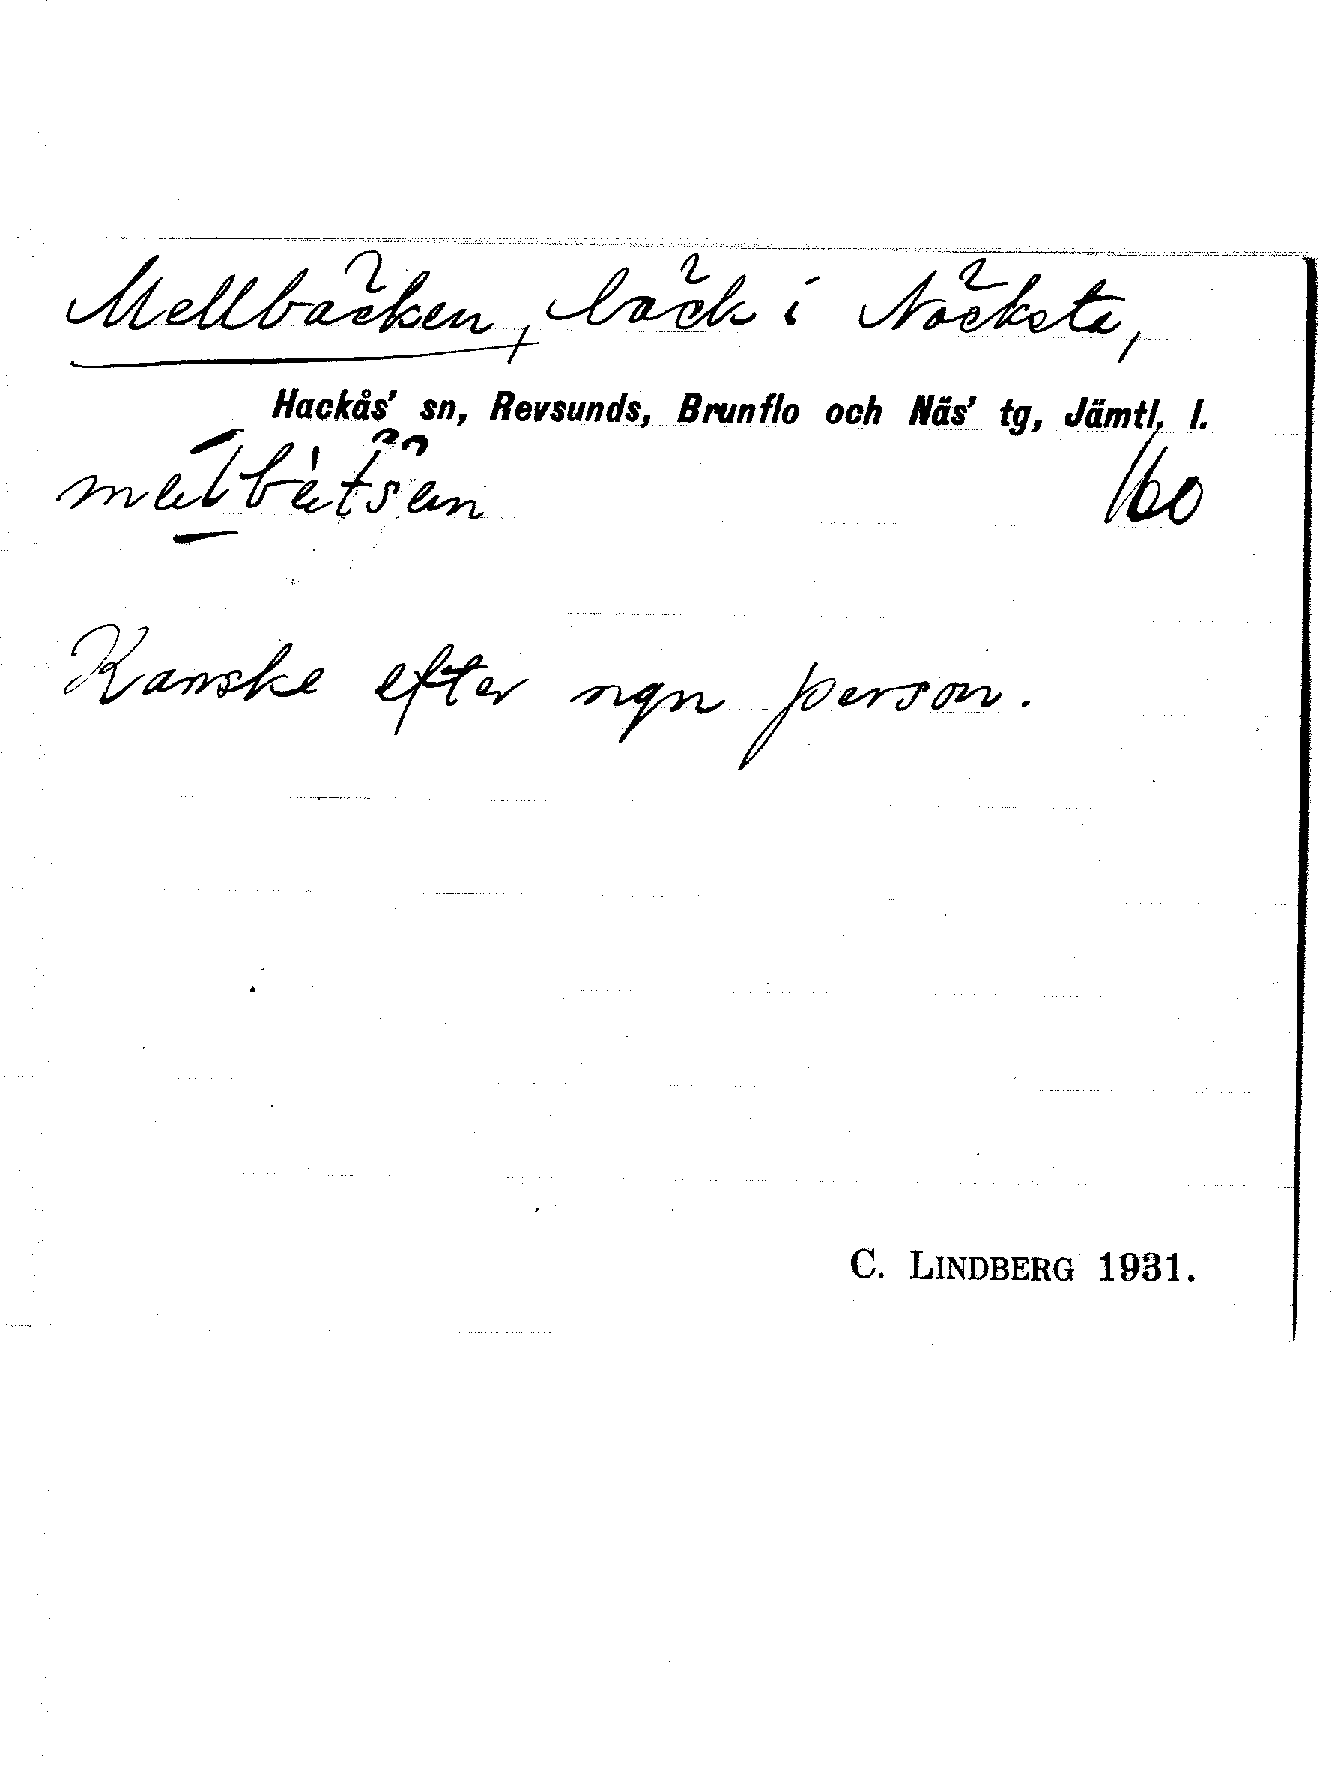 Mellbäcken, bäck i Näcksta,
Hackås' sn, Revsunds, Brunflo och Näs' tg, Jämtl. l.
160
Kanske efter ngn person.
C. LINDBERG 1931.